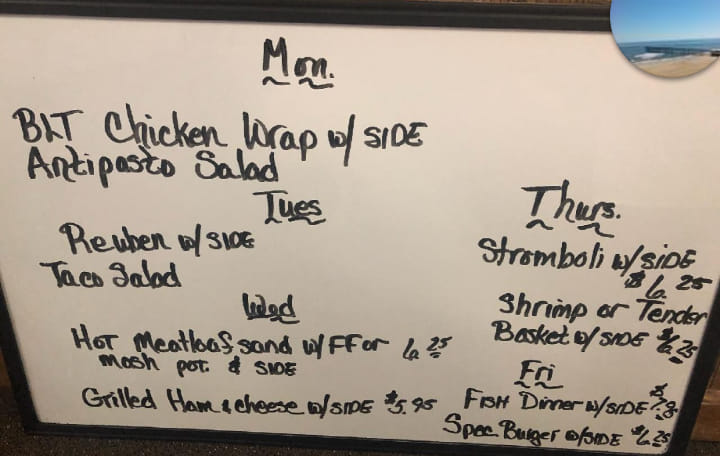 Mon.
BLT Chicken Wrap w/ SIDE
Antipasto Salad
Tues
Reuben w/ SIDE
Taco Salad
Wed
HOT Meatloaf sand w/ FF or 6.25
mash pot. & SIDE
Grilled Ham & cheese w/ SIDE $5.95
Thurs.
Stromboli w/ SIDE
$6.25
Shrimp or Tender
Basket w/ SIDE $6.25
Fri
FISH Dinner w/ SIDE
Spec. Burger w/ SIDE $6.25